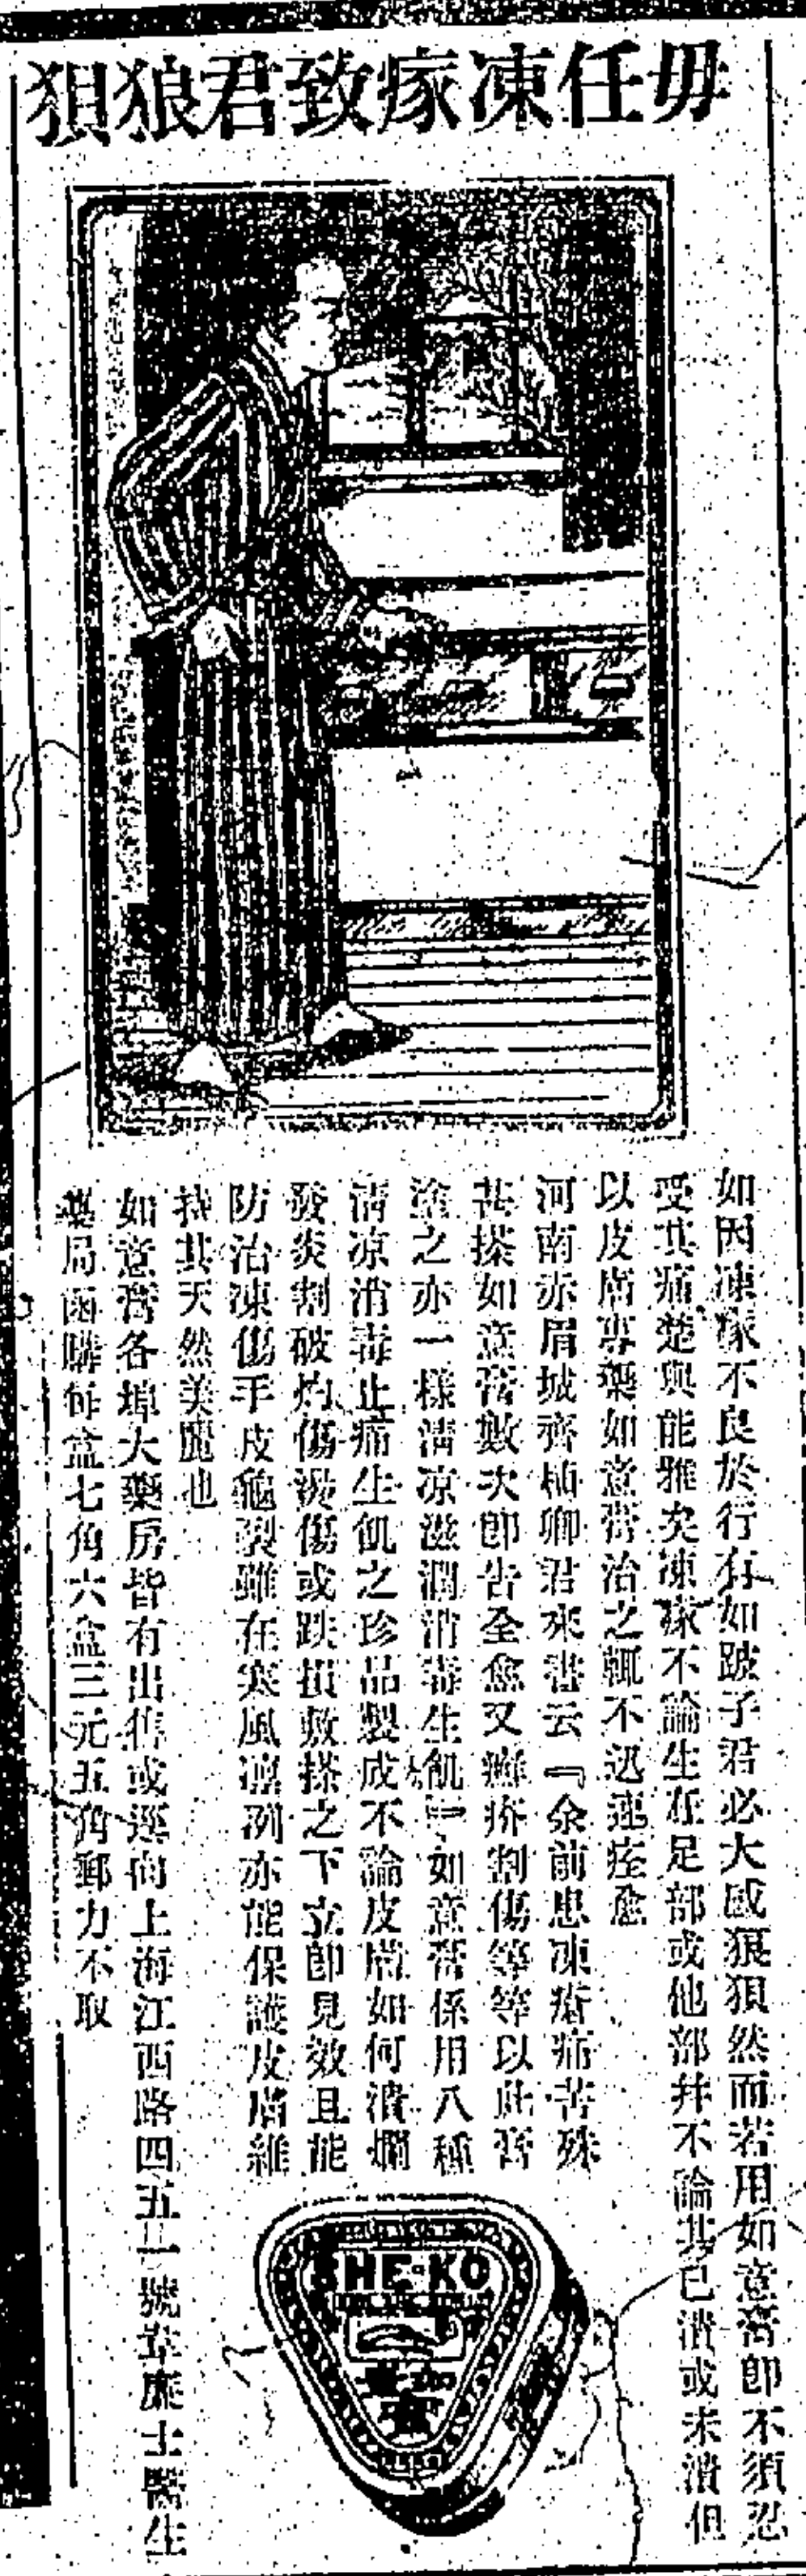 毋任凍瘃致君狼狽
如因凍瘃不良於行有如跛子君必大感狼狽然而若用如意膏即不須忍
受其痛楚與能雅矣凍瘃不論生在足部或他部并不論其已潰或未潰但
以皮膚專藥如意膏治之輒不迅速痊愈
河南赤眉城齊柚卿君來書云『余前患凍瘡痛苦殊
甚搽如意膏數次即告全愈又癬疥割傷等等以此膏
塗之亦一樣清凉滋潤消毒生飢』如意膏係用八種
清凉消毒止痛生飢之珍品製成不論皮膚如何潰爛
發炎割破灼傷燙傷或跌損敷搽之下立即見效且能
防治凍傷手皮龜裂雖在寒風凛冽亦能保護皮膚維
持其天然美麗也
如意膏各埠大藥房皆有出售或逕向上海江西路四五一號韋廉士醫生
藥局函購每盒七角六盒三元五角郵力不取
SHE-KO